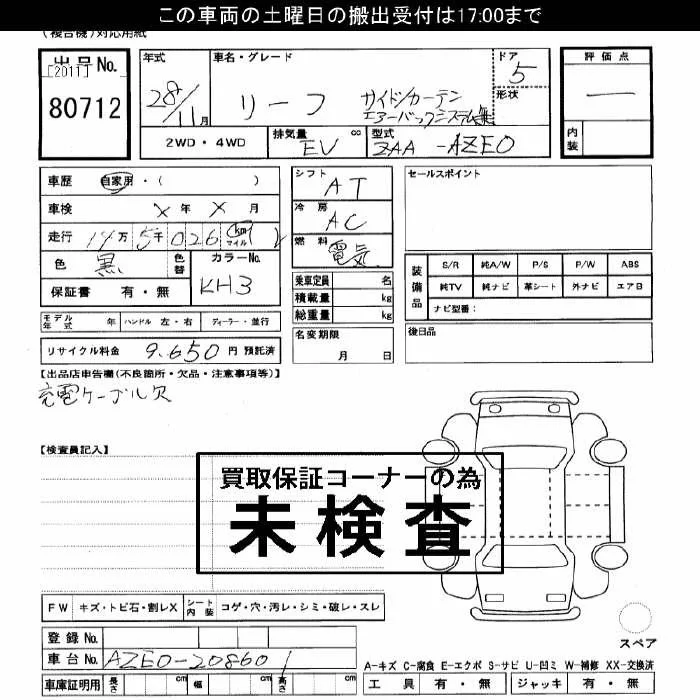 この車両の土曜日の搬出受付は17:00まで
(複合機)対応用紙
出品No.
[2011]
80712
年式
28/11月
車名・グレード
リーフ サイド/カーテン
エアーバックシステム無
ドア
5
形状
評価点
―
内装
2WD・4WD
排気量 cc
EV
型式
ZAA-AZE0
車歴 自家用・( )
車検 X年 X月
走行 14万5千026 km マイル
色 黒
色替
カラーNo.
KH3
保証書 有・無
シフト
AT
冷房
AC
燃料
電気
乗車定員 名
積載量 kg
総重量 kg
セールスポイント
装備品
S/R 純A/W P/S P/W ABS
純TV 純ナビ 革シート 外ナビ エアB
ナビ型番:
モデル年式 年 ハンドル 左・右 ディーラー・並行
名変期限
月 日
後日品
リサイクル料金 9,650 円 預託済
【出品店申告欄(不良箇所・欠品・注意事項等)】
充電ケーブル欠
【検査員記入】
買取保証コーナーの為
未検査
FW キズ・トビ石・割レX シート内装 コゲ・穴・汚レ・シミ・破レ・スレ
登録No.
車台No. AZE0-208601
車庫証明用 長さ cm 幅 cm 高さ cm
スペア
A-キズ C-腐食 E-エクボ S-サビ U-凹ミ W-補修 XX-交換済
工具 有・無 ジャッキ 有・無